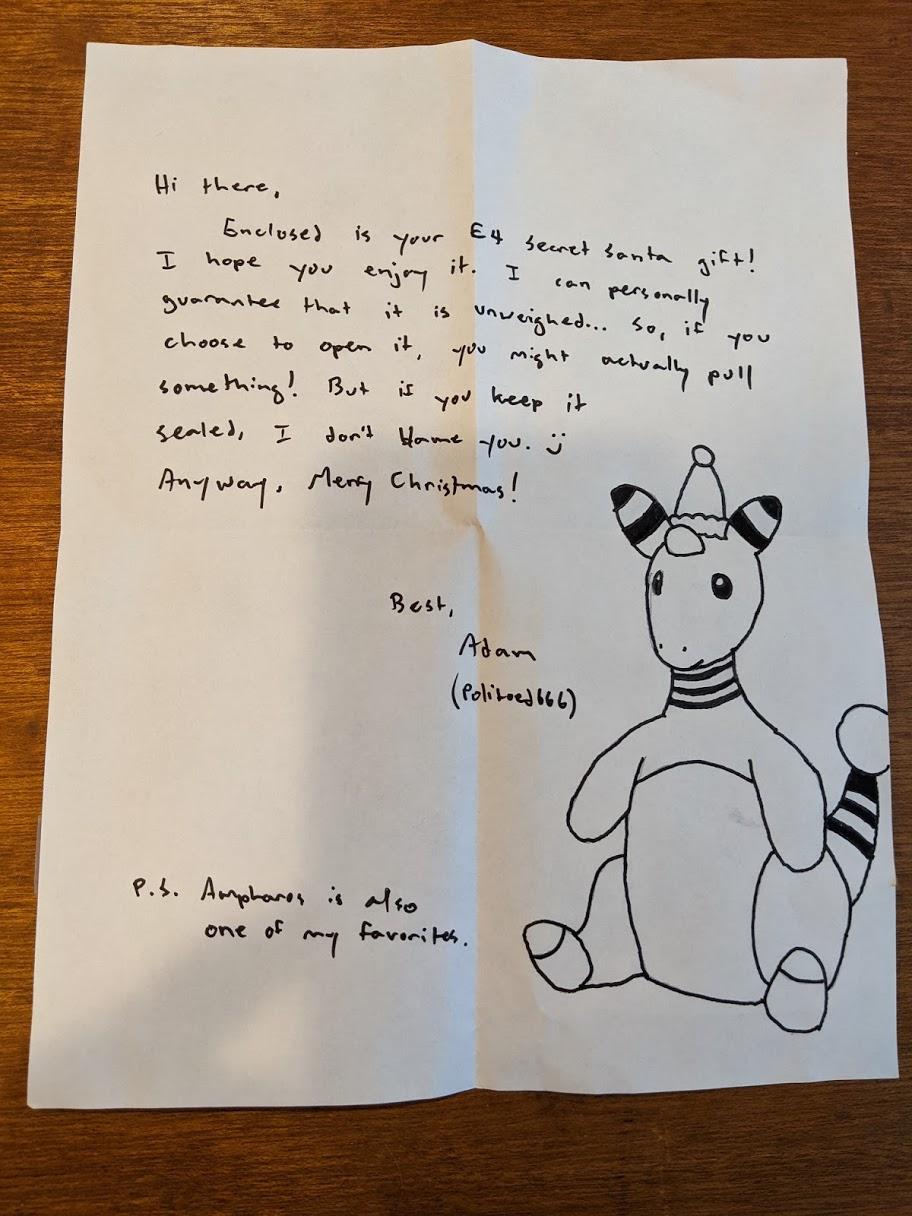 Hi there,
Enclosed is your E4 secret santa gift!
I hope you enjoy it. I can personally
guarantee that it is unweighed... so, if you
choose to open it, you might actually pull
something! But if you keep it
sealed, I don't blame you. :)
Anyway, Merry Christmas!
Best,
Adam
(Politoed666)
P.S. Ampharos is also
one of my favorites.